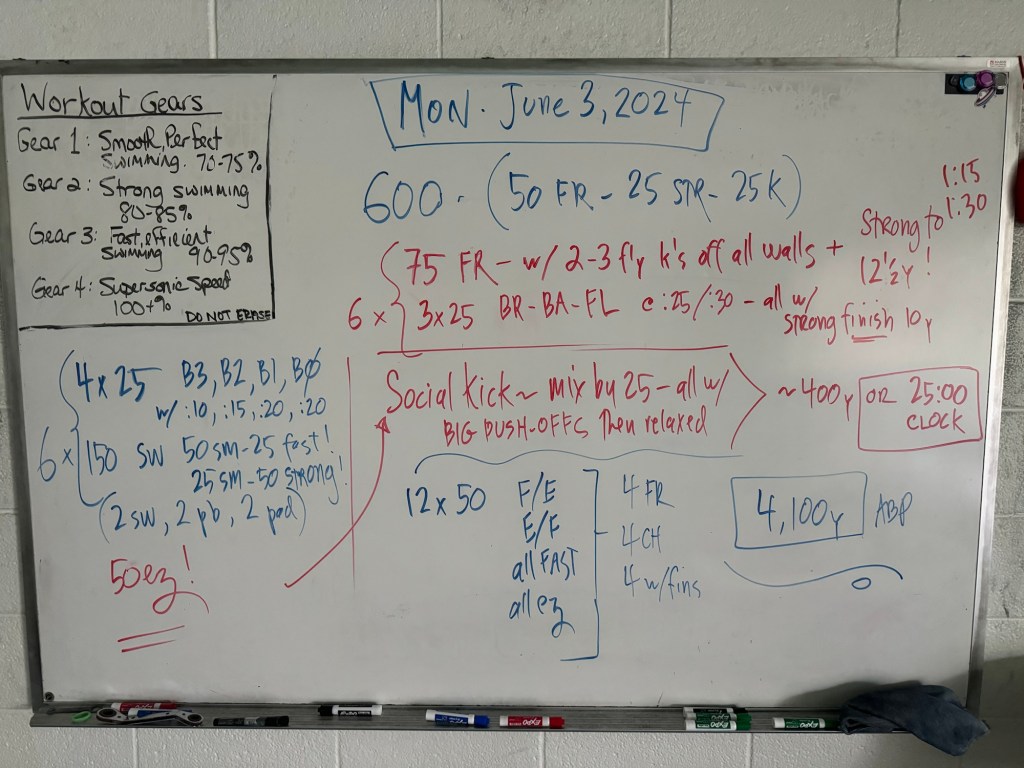 Workout Gears
Gear 1: Smooth, Perfect
Swimming. 70-75%
Gear 2: Strong swimming
80-85%
Gear 3: Fast, efficient
Swimming 90-95%
Gear 4: Supersonic Speed
100+%
DO NOT ERASE
MON. June 3, 2024
600 · (50 FR - 25 STR - 25 K)
1:15
1:30
6 x
75 FR - w/ 2-3 fly k's off all walls +
Strong to
12 1/2 y!
3x25 BR-BA-FL @ :25/:30 - all w/
strong finish 10y
6 x
4 x 25 B3, B2, B1, BØ
w/ :10, :15, :20, :20
150 sw 50sm-25 fast!
25sm-50 strong!
(2sw, 2pb, 2pad)
50ez!
Social Kick ~ mix by 25 - all w/
BIG PUSH-OFFS Then relaxed
~400y OR 25:00
CLOCK
12 x 50 F/E
E/F
all FAST
all ez
4 FR
4 CH
4 w/fins
4,100y ABP